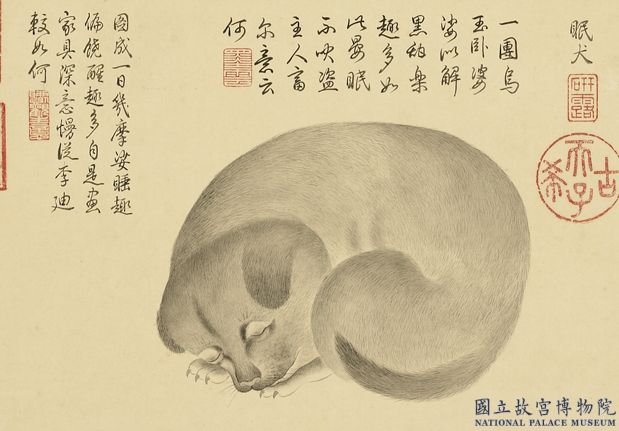 眠犬
研露
古希天子
一團烏
玉卧婆
娑似解
黑甜樂
趣多如
此晏眠
不吠盜
主人畜
尔意云
何
圖成一日幾摩娑睡趣
偏饒醒趣多自是畫
家具深意慢從李迪
較如何
國立故宮博物院
NATIONAL PALACE MUSEUM